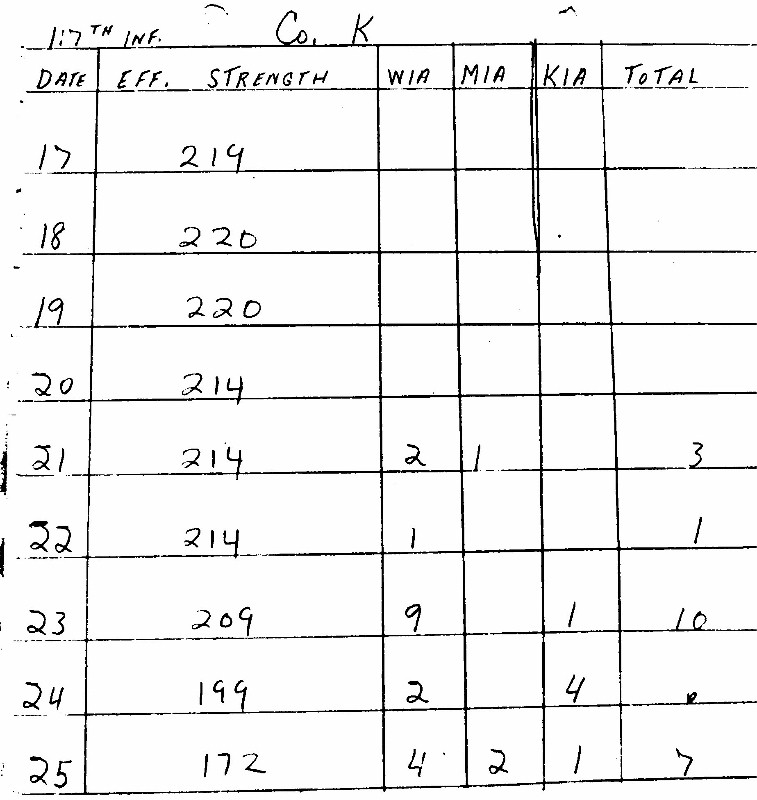 117TH INF. Co. K
DATE EFF. STRENGTH WIA MIA KIA TOTAL
17 219
18 220
19 220
20 214
21 214 2 1 3
22 214 1 1
23 209 9 1 10
24 199 2 4
25 172 4 2 1 7